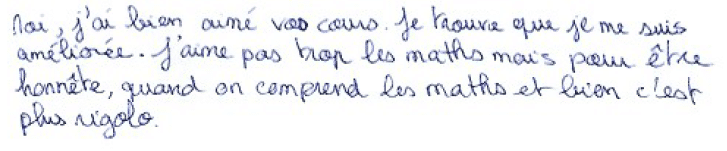 Moi, j'ai bien aimé vos cours. Je trouve que je me suis
améliorée. J'aime pas trop les maths mais pour être
honnête, quand on comprend les maths et bien c'est
plus rigolo.